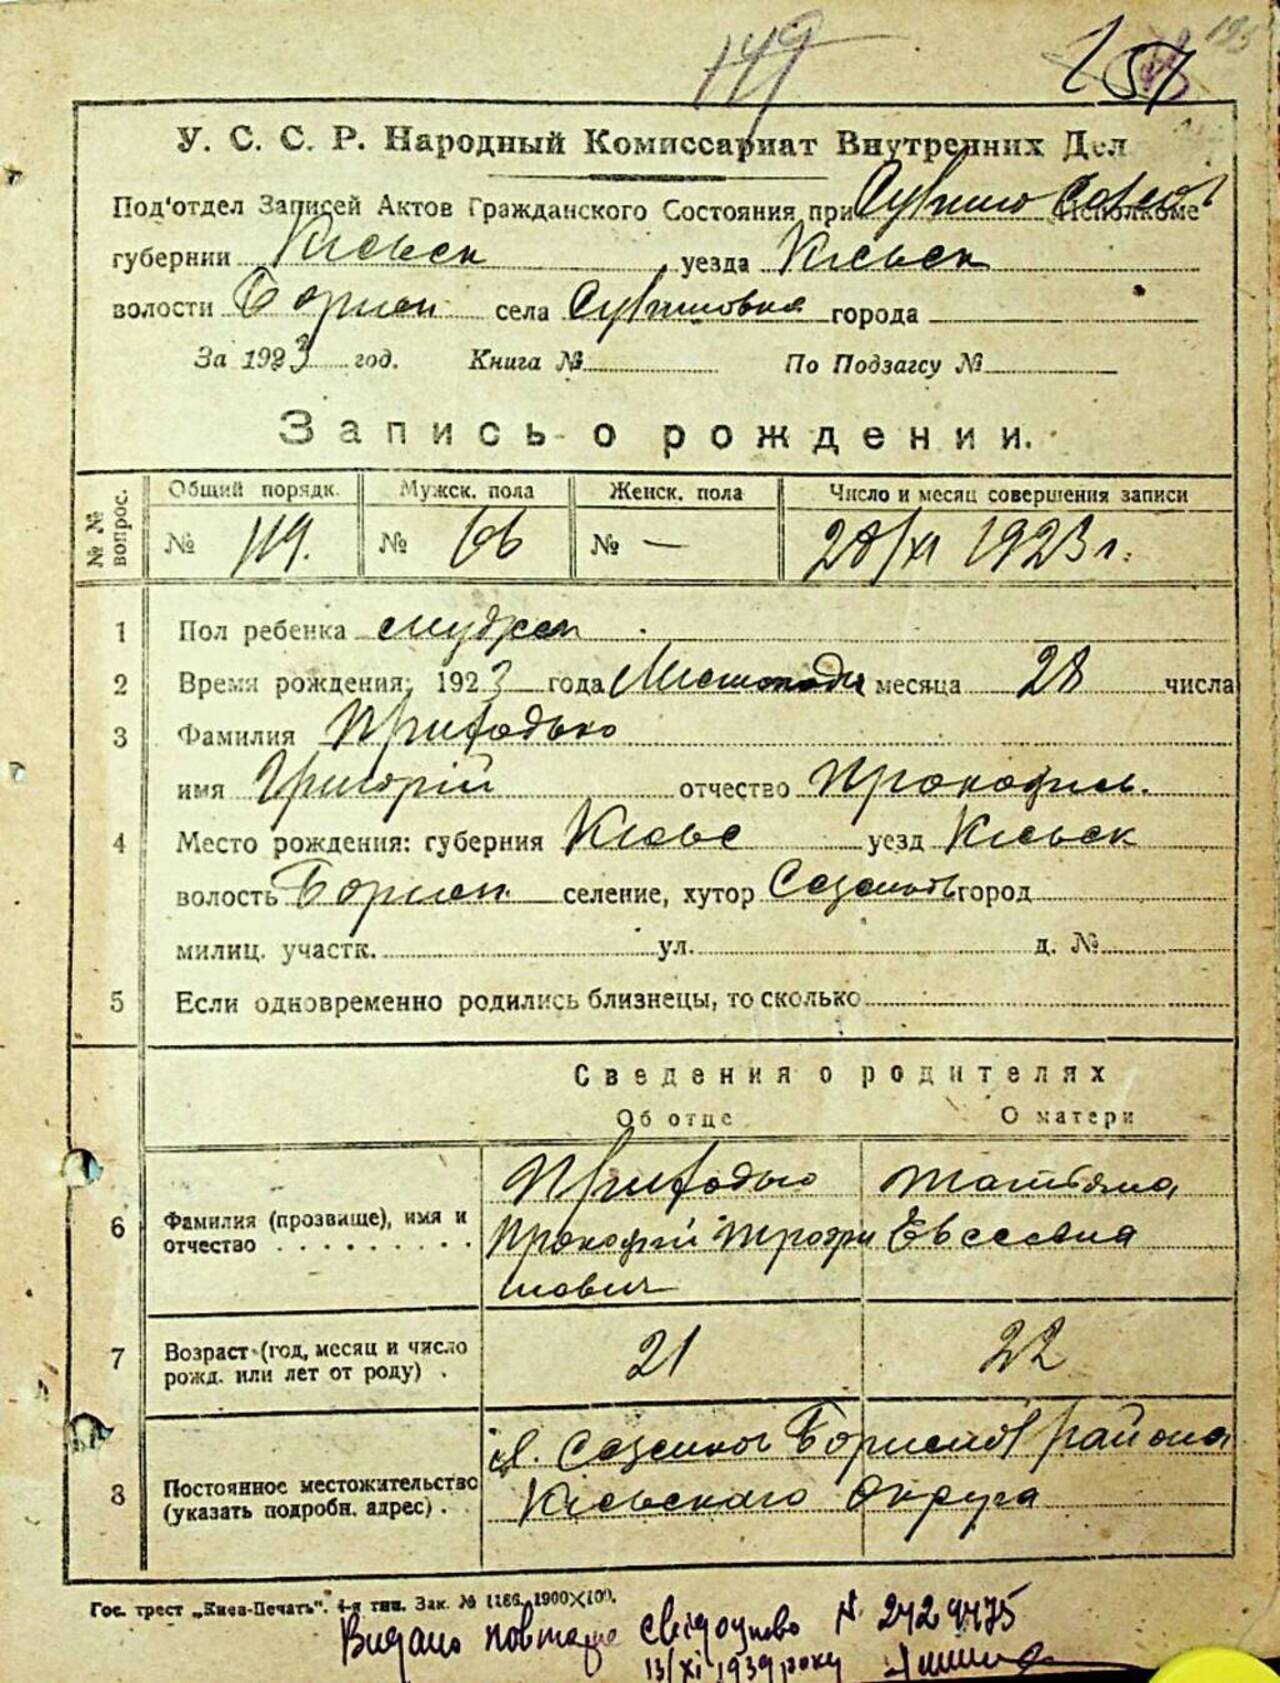 149
157
У. С. С. Р. Народный Комиссариат Внутренних Дел
Под'отдел Записей Актов Гражданского Состояния при Исполкоме
губернии Київськ уезда Київськ
волости Борисп села города
За 1923 год. Книга № По Подзагсу №
Запись о рождении.
№ № вопрос. Общий порядк. Мужск. пола Женск. пола Число и месяц совершения записи
№ 119. № 66 № — 28/XI 1923 г.
1 Пол ребенка
2 Время рождения: 1923 года Листопада месяца 28 числа
3 Фамилия Приходько
имя Григорій отчество Прокофиев.
4 Место рождения: губерния Київс уезд Київськ
волость Борисп селение, хутор город
милиц. участк. ул. д. №
5 Если одновременно родились близнецы, то сколько
Сведения о родителях
Об отце О матери
Приходько Татьяна
6 Фамилия (прозвище), имя и отчество Прокофій Евсеевна
мович
7 Возраст (год, месяц и число рожд. или лет от роду) . 21 22
с. района
8 Постоянное местожительство (указать подробн. адрес) . Київського Округа
Гос. трест „Киев-Печать". 4-я тип. Зак. № 1186. 1900×100.
Видано повторне свідоцтво N. 2429475
13/XI 1939 року